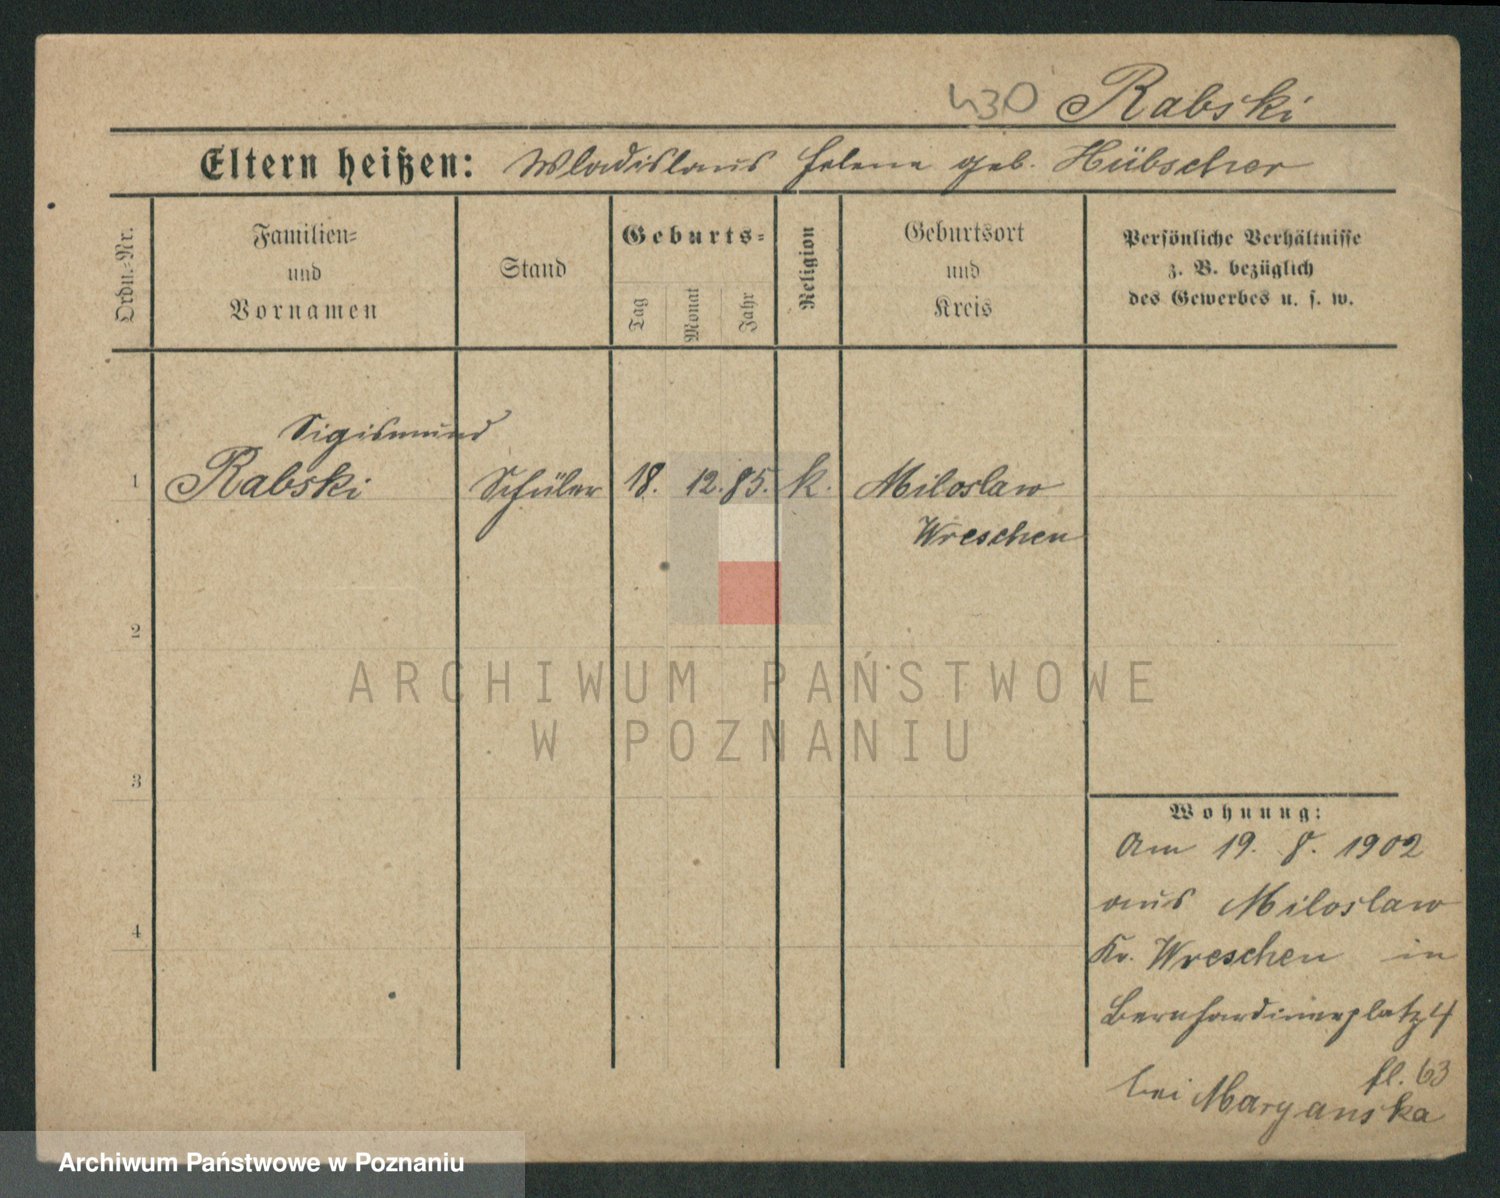 430 Rabski
Eltern heißen: Wladislaus Helene geb. Hübscher
Ordn.-Nr.
Familien-
und
Vornamen
Stand
Geburts-
Tag
Monat
Jahr
Religion
Geburtsort
und
Kreis
Persönliche Verhältnisse
z. B. bezüglich
des Gewerbes u. s. w.
Sigismund
1 Rabski Schüler 18. 12. 85. k. Miloslaw
Wreschen
2
ARCHIWUM PAŃSTWOWE
W POZNANIU
3
Wohnung:
Am 19. 8. 1902
aus Miloslaw
4
Kr. Wreschen in
Bernhardinerplatz 4
fl. 63
bei Maryanska
Archiwum Państwowe w Poznaniu